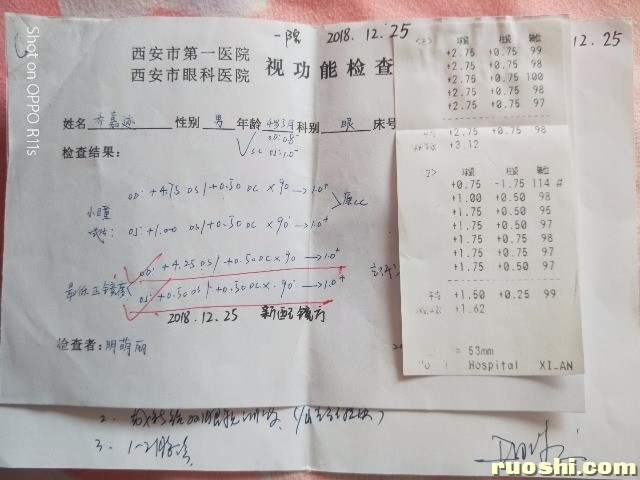 一院 2018.12.25
西安市第一医院
西安市眼科医院 视功能检查
姓名 性别 男 年龄 4岁3月 科别 眼 床号
检查结果:
Vsc OD: 0.8
OS: 1.0
小瞳
OD: +4.75 DS/+0.50 DC × 90 → 1.0+
OS: +1.00 DS/+0.50 DC × 90 → 1.0+
原cc
最低正镜度
OD: +4.25 DS/+0.50 DC × 90 → 1.0+
OS: +0.50 DS/+0.50 DC × 90 → 1.0+
2018.12.25 新配镜方
检查者: 明萌丽
球面 柱面 轴位
+2.75 +0.75 99
+2.75 +0.75 98
+2.75 +0.75 100
+2.75 +0.75 98
+2.75 +0.75 97
平均 +2.75 +0.75 98
+3.12
球面 柱面 轴位
+0.75 -1.75 114 #
+1.00 +0.50 98
+1.75 +0.50 95
+1.75 +0.50 97
+1.75 +0.50 98
+1.75 +0.50 97
平均 +1.50 +0.25 99
+1.62
= 53mm
Hospital XI_AN
12.25
2.
3. 1-2月
Shot on OPPO R11s
ruoshi.com